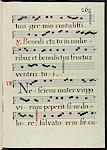 tuo gremio contulisti
℣. Benedicta tu in muli
ribus et benedictus fructus
ventris tu
Nesciens mater virgo
virum peperit sine dolo
re salvato rem secu